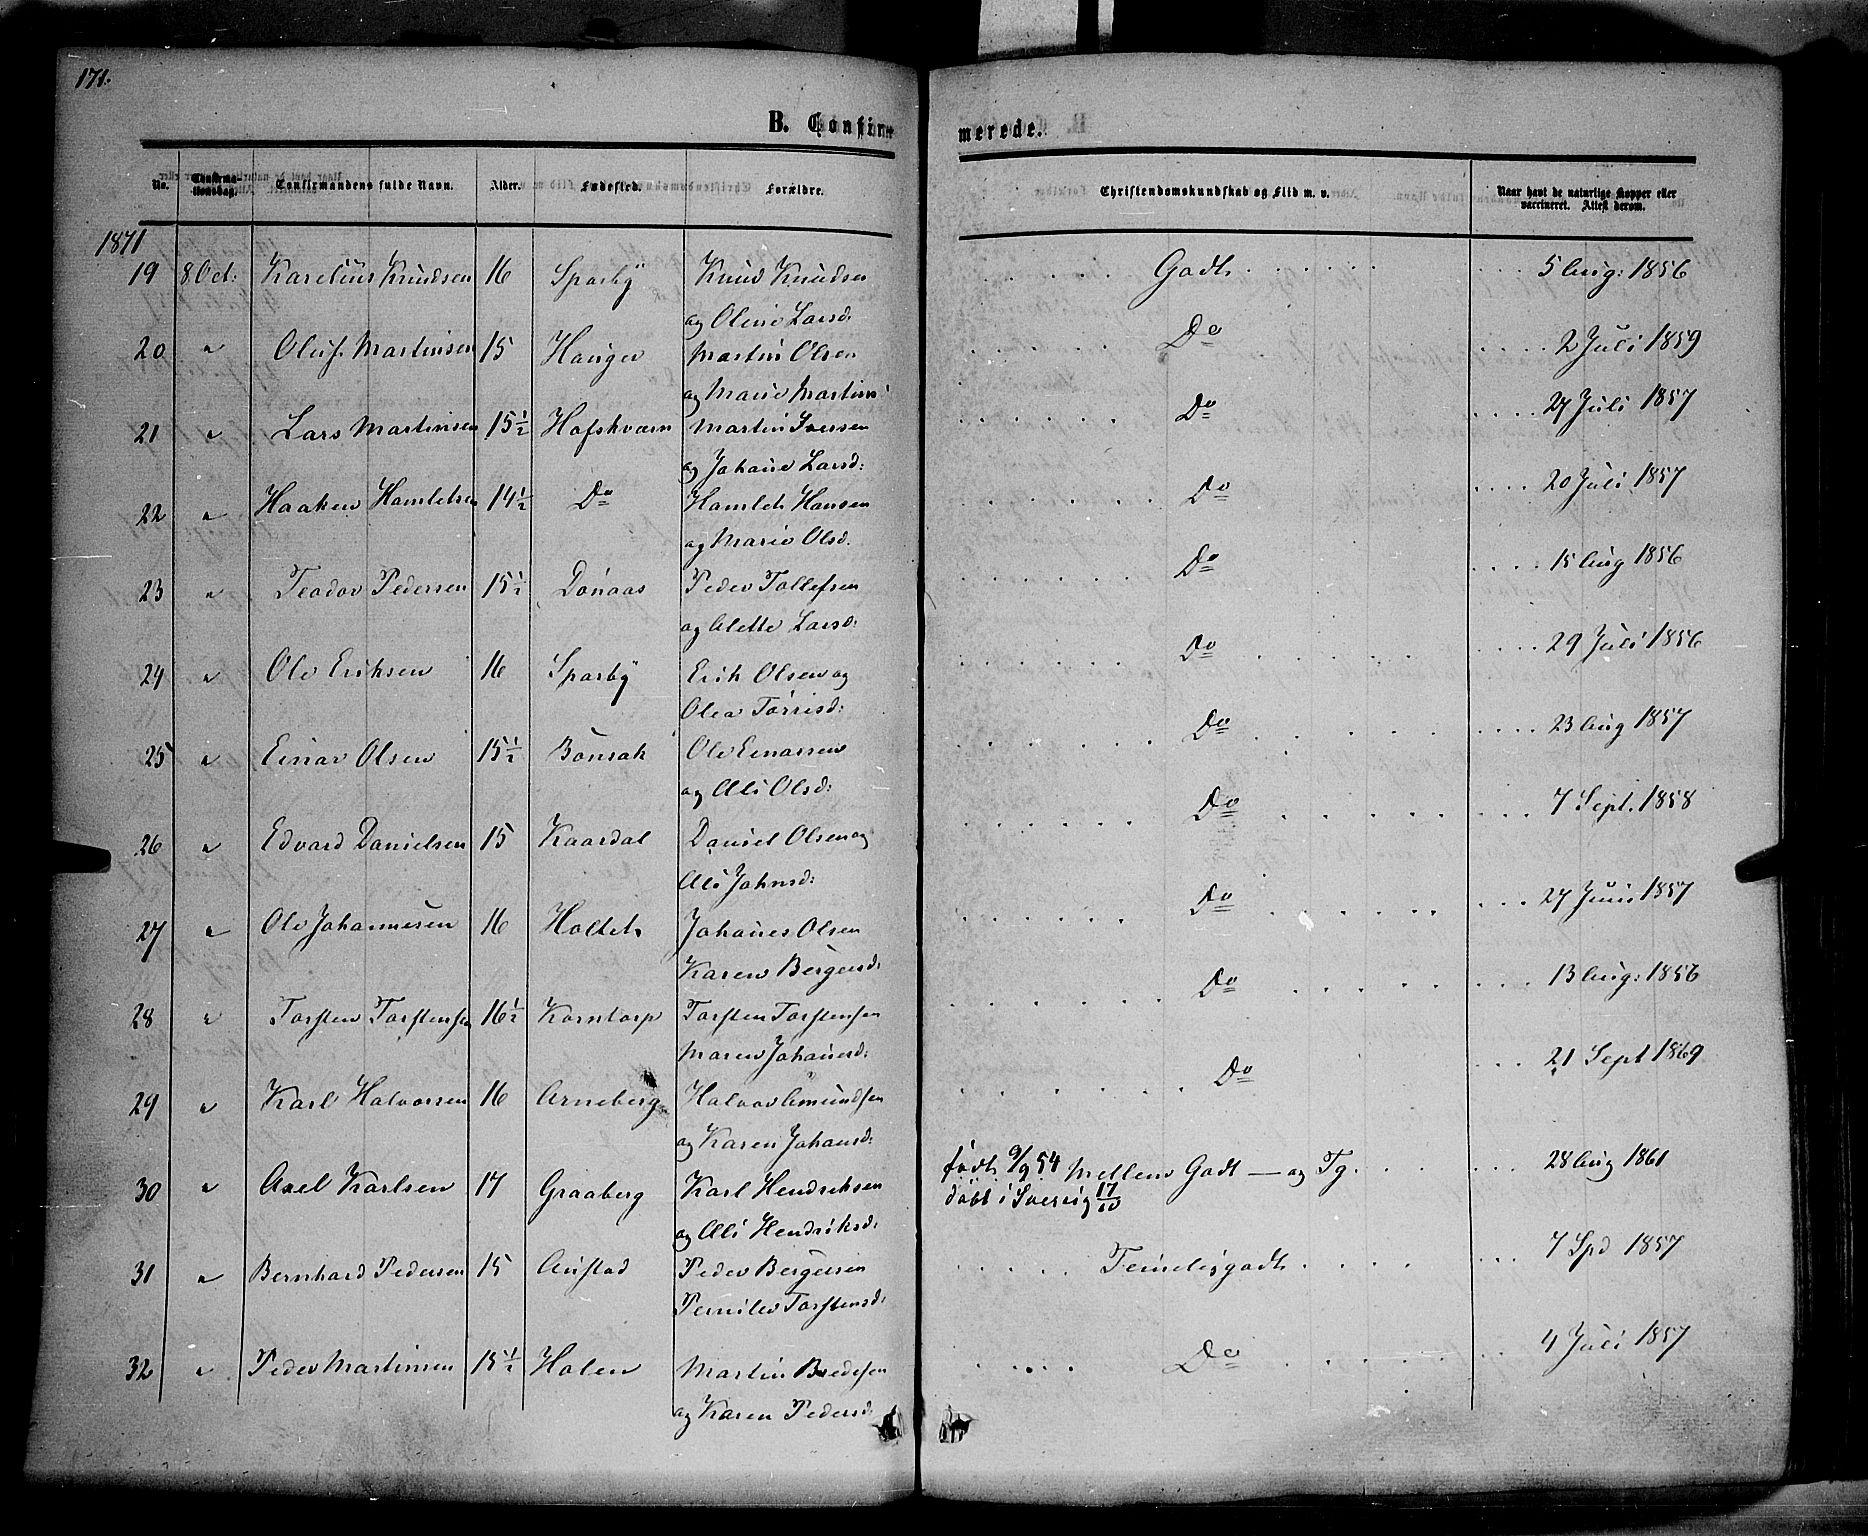 171.
B. Confirmerede.
No. Confirmationsdag. Confirmandens fulde Navn. Alder. Fødested. Forældre. Christendomskundskab og Flid m. v. Naar havt de naturlige Kopper eller vaccineret. Attest derom.
1871
19 8 Oct: Karelius Knudsen 16 Sparby Knud Knudsen Godt 5 Aug: 1856
og Oline Larsd:
20 " Oluf Martinsen 15 Hauger Martin Olsen Do 2 Juli 1859
og Marie Martins
21 " Lars Martinsen 15½ Hofskværn Martin Iversen Do 27 Juli 1857
og Johane Larsd:
22 " Haaken Hamletsen 14½ Do Hamlet Hansen Do 20 Juli 1857
og Marie Olsd.
23 " Teodor Pedersen 15½ Dønaas Peder Tollefsen Do 15 Aug 1856
og Alette Larsd:
24 " Ole Eriksen 16 Sparby Erik Olsen og Do 29 Juli 1856
Olea Torrisd:
25 " Einar Olsen 15½ Bønsak Ole Einarsen Do 23 Aug 1857
og Ali Olsd:
26 " Edvard Danielsen 15 Kaardal Daniel Olsen og Do 7 Sept. 1858
Ali Johnsd:
27 " Ole Johannesen 16 Holtet Johanes Olsen Do 27 Juni 1857
Karen Bergersd:
28 " Torsten Torstensen 16½ Korntorp Torsten Torstensen Do 13 Aug: 1856
Maren Johanesd:
29 " Karl Halvorsen 16 Arneberg Halvor Amundsen Do 21 Sept 1869
og Karen Johansd:
30 " Axel Karlsen 17 Graaberg Karl Hendriksen født 9/9 54 Mellem Godt — og Tg. 28 Aug 1861
og Ali Hendriksd: døbt i Sverig 17/10
31 " Bernhard Pedersen 15 Austad Peder Bergersen Temeligodt 7 Spd 1857
Pernille Torstensd:
32 " Peder Martinsen 15½ Holen Martin Bredesen Do 4 Juli 1857
og Karen Pedersd: